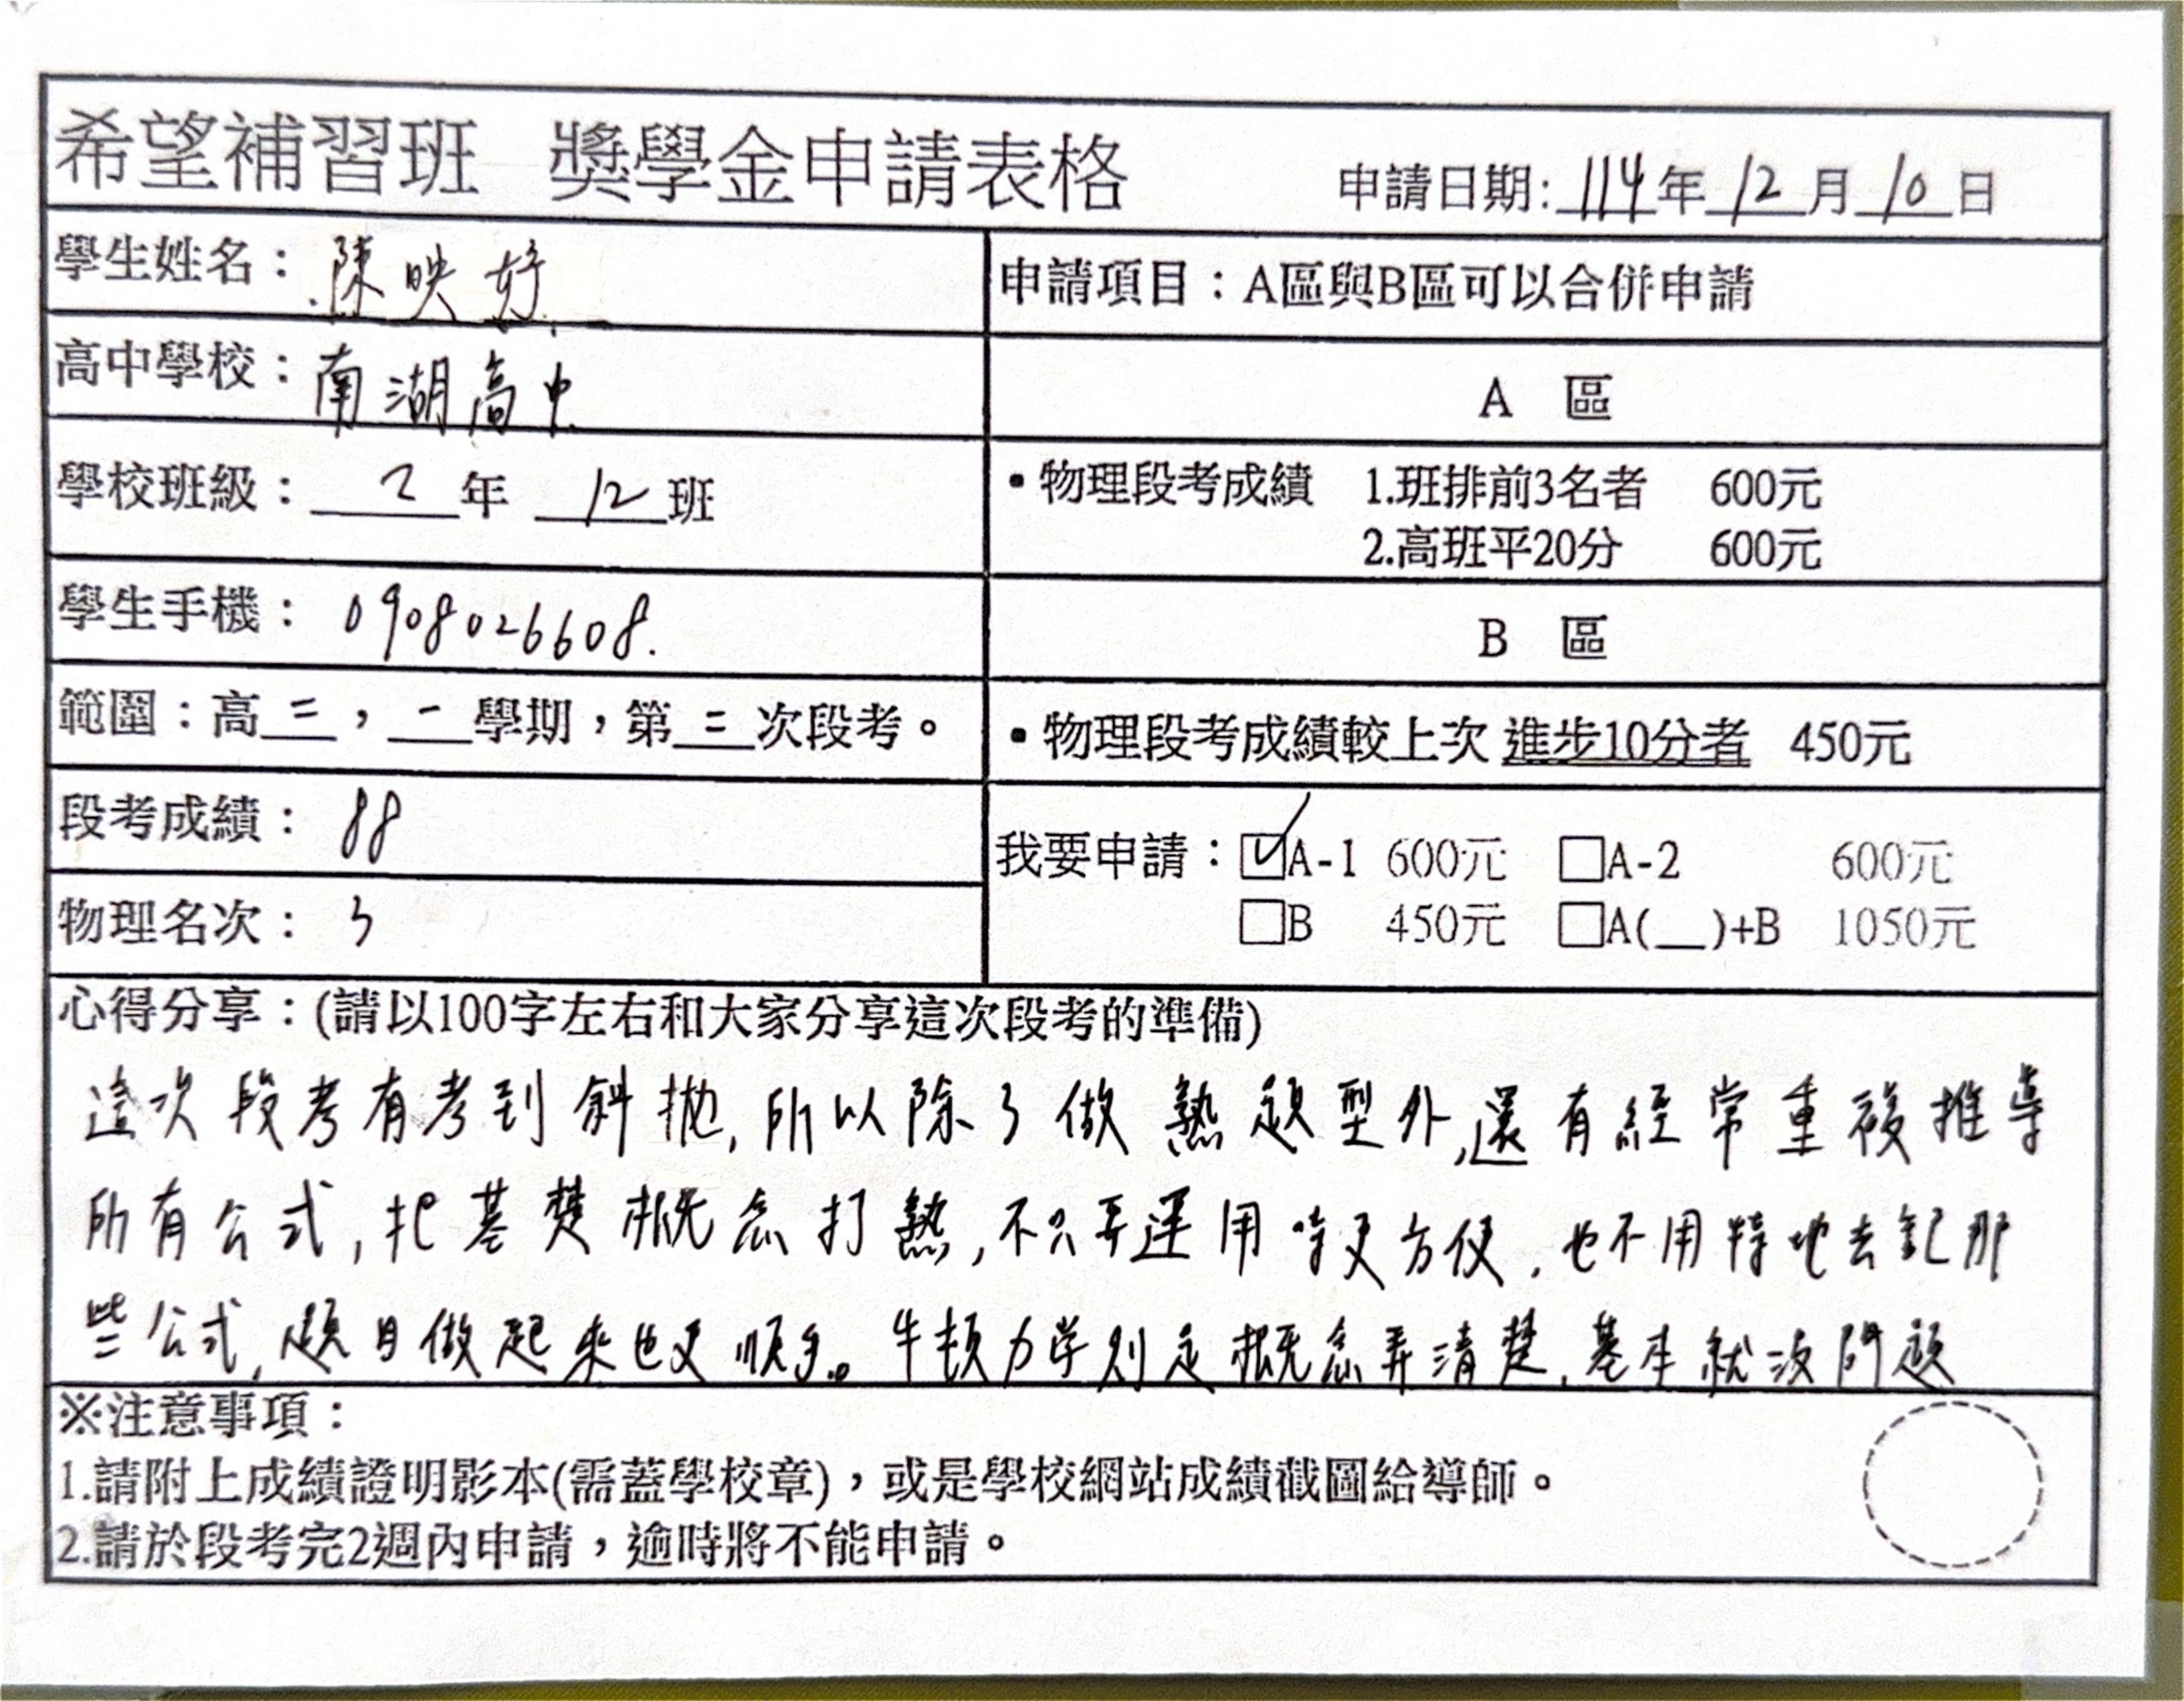 希望補習班 獎學金申請表格 申請日期: 114年 12月 10日
學生姓名： 陳映妤
申請項目：A區與B區可以合併申請
高中學校： 南湖高中
A 區
學校班級： 2 年 12 班
•物理段考成績 1.班排前3名者 600元
2.高班平20分 600元
學生手機： 0908026608.
B 區
範圍：高二，一學期，第二次段考。
•物理段考成績較上次 進步10分者 450元
段考成績： 88
我要申請：☑A-1 600元 □A-2 600元
□B 450元 □A(__)+B 1050元
物理名次： 3
心得分享：(請以100字左右和大家分享這次段考的準備)
這次段考有考到斜拋,所以除了做熟題型外,還有經常重複推導
所有公式,把基楚概念打熟,不只要運用時更方便,也不用特地去記那
些公式,題目做起來也更順手。牛頓力学則是概念弄清楚,基本就沒問題
※注意事項：
1.請附上成績證明影本(需蓋學校章)，或是學校網站成績截圖給導師。
2.請於段考完2週內申請，逾時將不能申請。